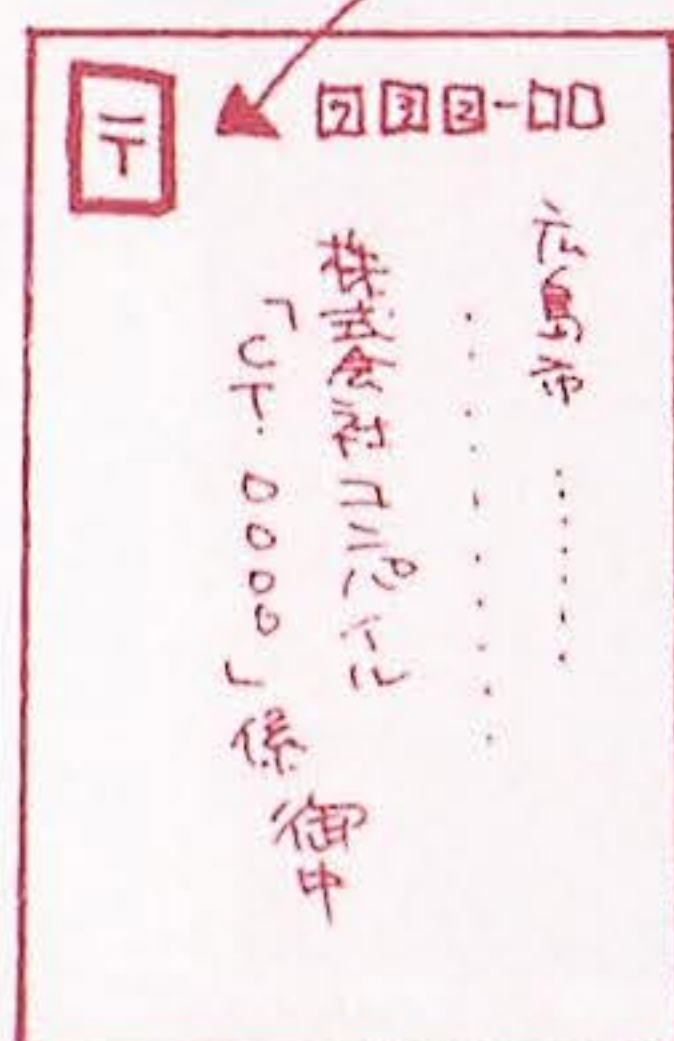 〒
732-□□
広島市・・・・・・
・・・・・・・・・
株式会社コンパイル
「CT.○○○○」係
御中